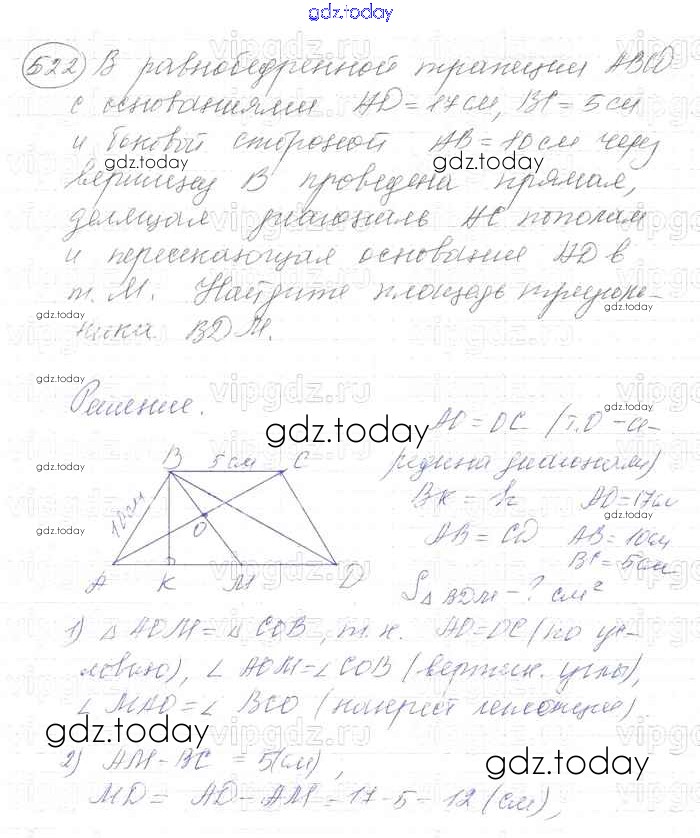 gdz.today
522 В равнобедренной трапеции ABCD
с основаниями AD = 17 см, BC = 5 см
и боковой стороной AB = 10 см через
gdz.today gdz.today
вершину B проведена прямая,
делящая диагональ AC пополам
и пересекающая основание AD в
gdz.today gdz.today
т. M. Найдите площадь треуголь-
ника BDM.
gdz.today gdz.today
Решение.
gdz.today
AO = OC (т.O - се-
редина диагонали)
gdz.today
B 5 см C
10 см
O
A K M D
BK = h AD = 17 см
gdz.today
AB = CD AB = 10 см
BC = 5 см
S△BDM - ? см²
gdz.today gdz.today
1) △ AOM = △ COB, т.к. AO = OC (по ус-
ловию), ∠ AOM = ∠ COB (вертик. углы),
∠ MAO = ∠ BCO (накрест лежащие)
gdz.today
2) AM - BC = 5 (см),
gdz.today
MD = AD - AM = 17 - 5 = 12 (см),